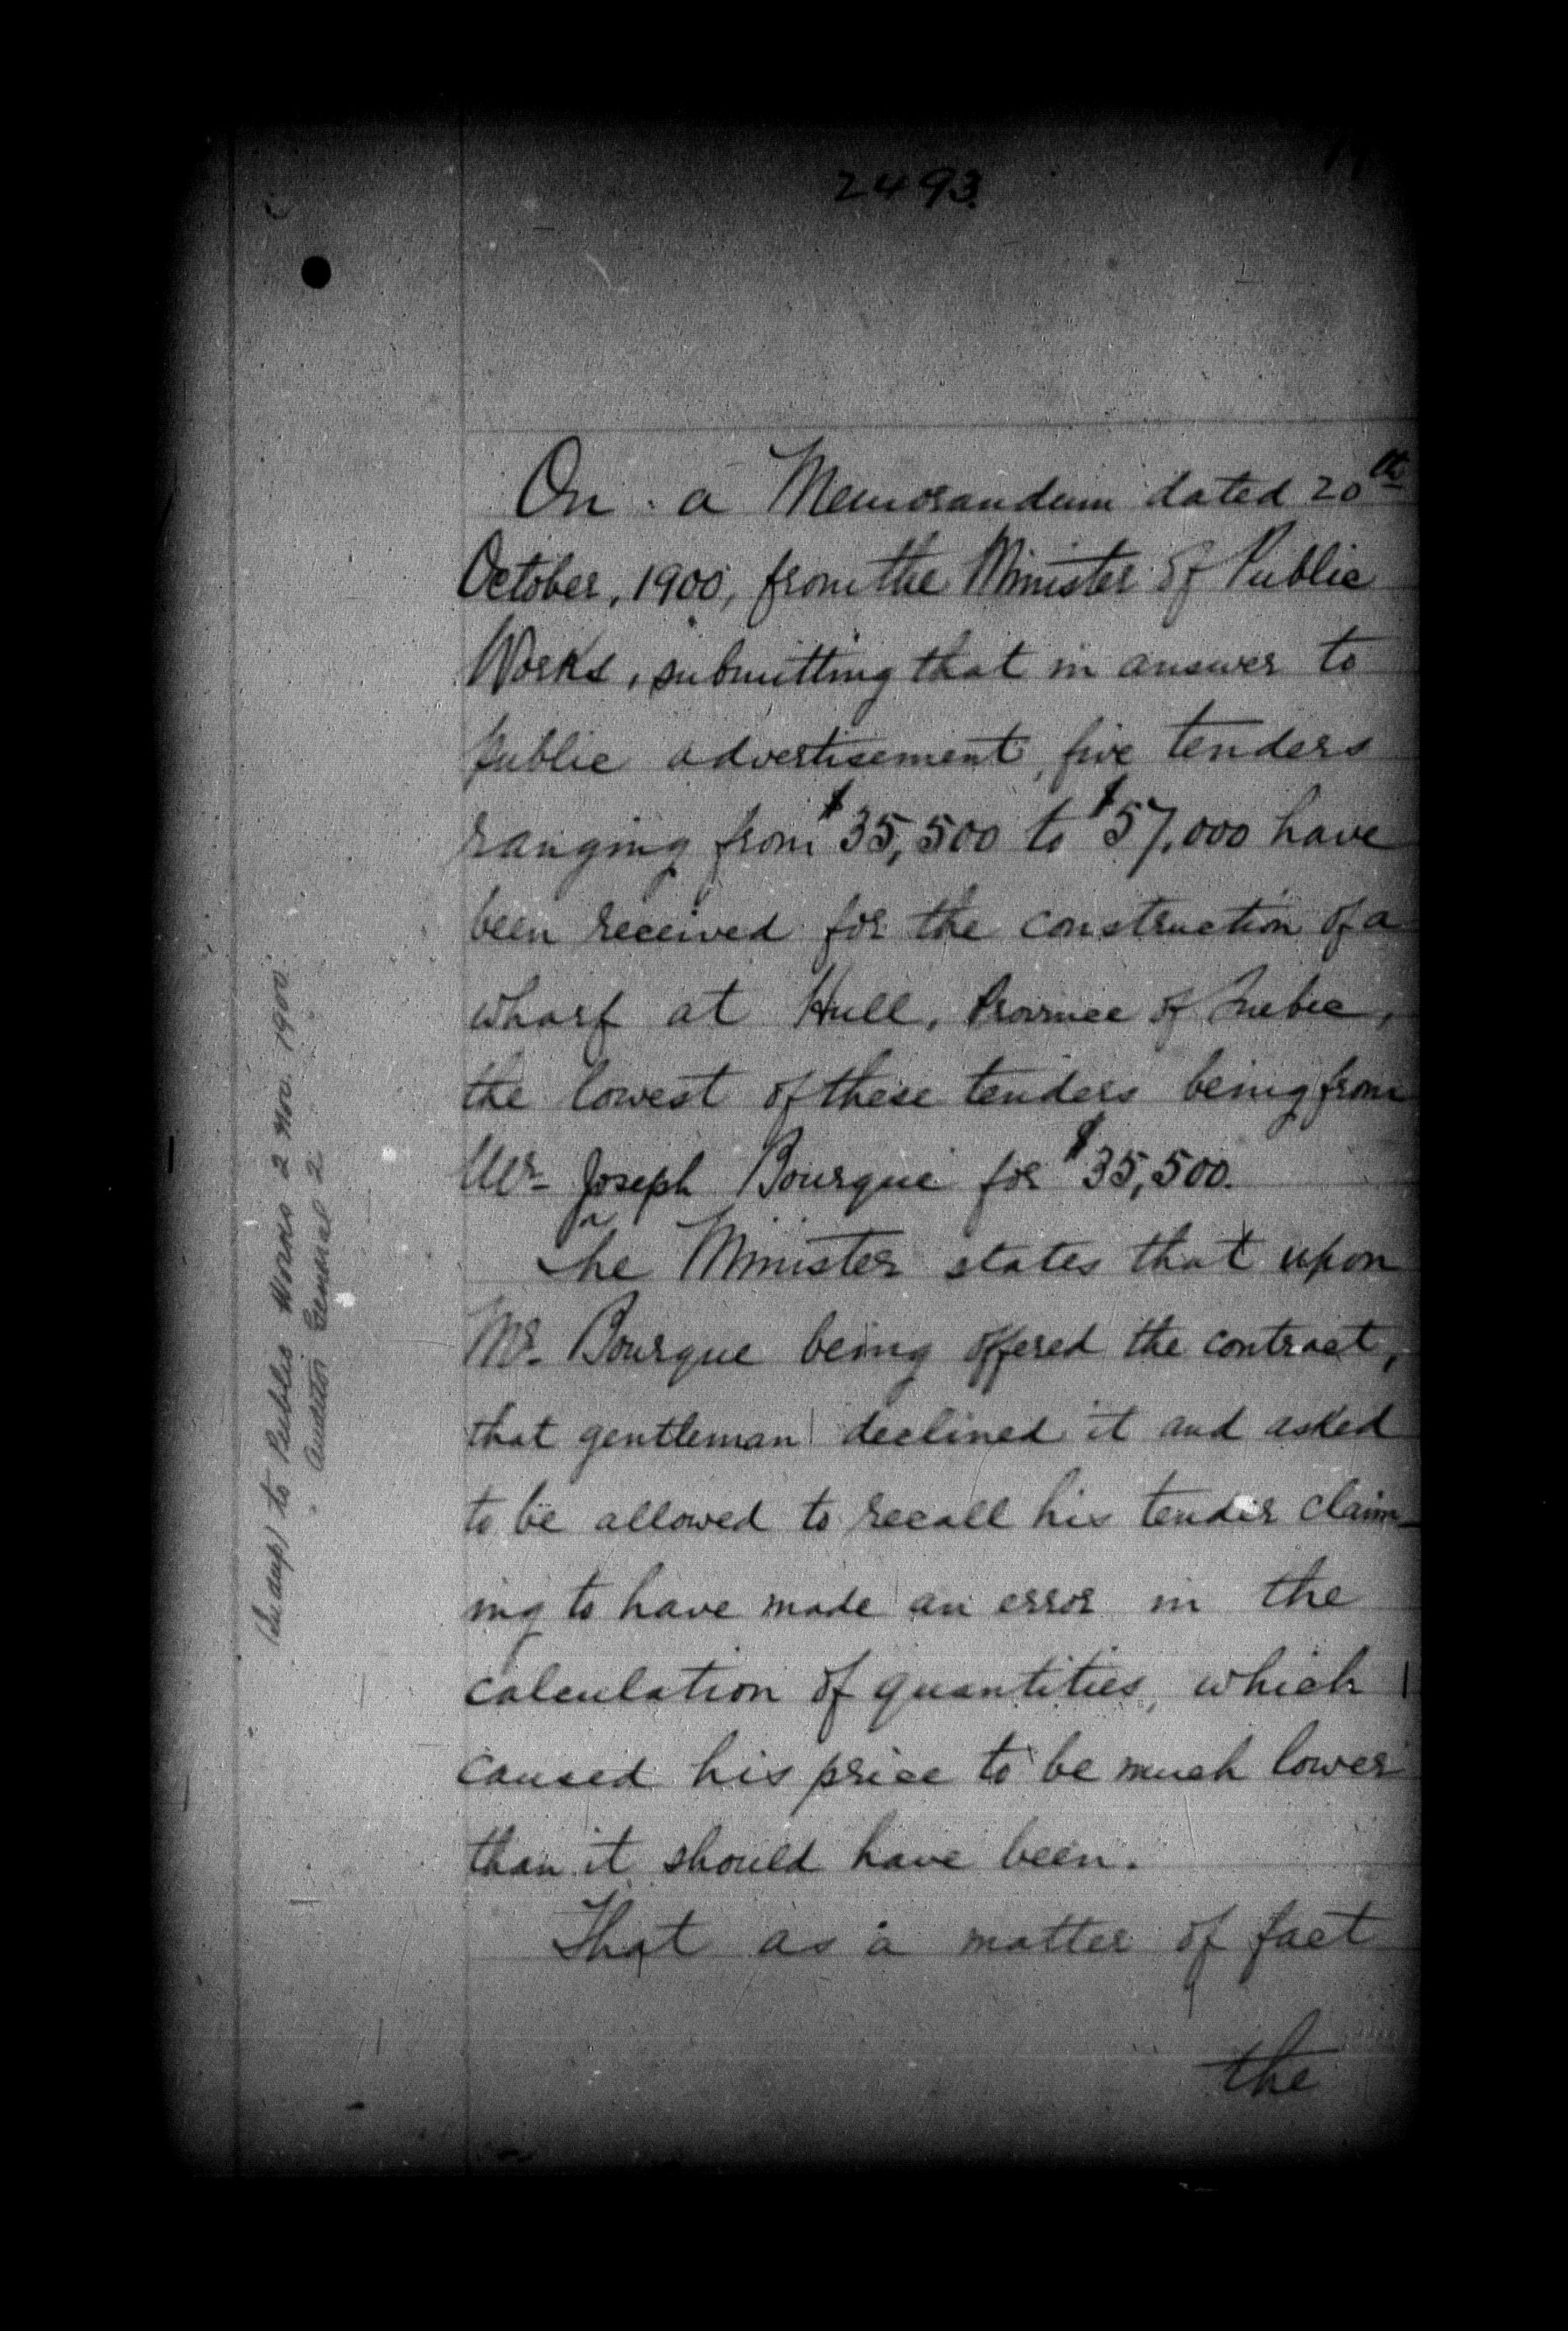 2493
On a Memorandum dated 20th
October, 1900, from the Minister of Public
Works, submitting that in answer to
public advertisement, five tenders
ranging from $35,500 to $57,000 have
been received for the construction of a
wharf at Hull, Province of Quebec,
the lowest of these tenders being from
Mr. Joseph Bourque for $35,500.
The Minister states that upon
Mr. Bourque being offered the contract,
that gentleman declined it and asked
to be allowed to recall his tender claim-
ing to have made an error in the
calculation of quantities, which
caused his price to be much lower
than it should have been.
That as a matter of fact
the
to Public Works 2 Nov. 1900
Auditor General 2